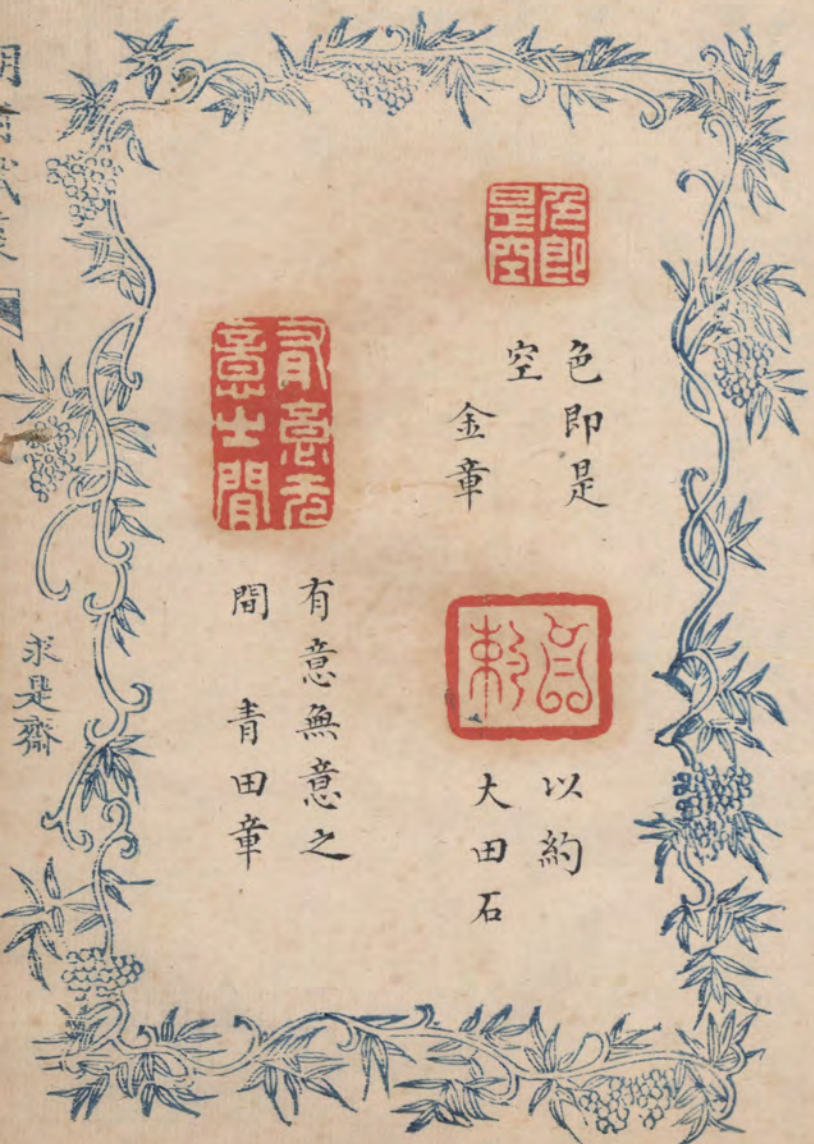 色即是空
色即是
空
金章
以約
大田石
有意無意之間
有意無意之
間 青田章
求是齋